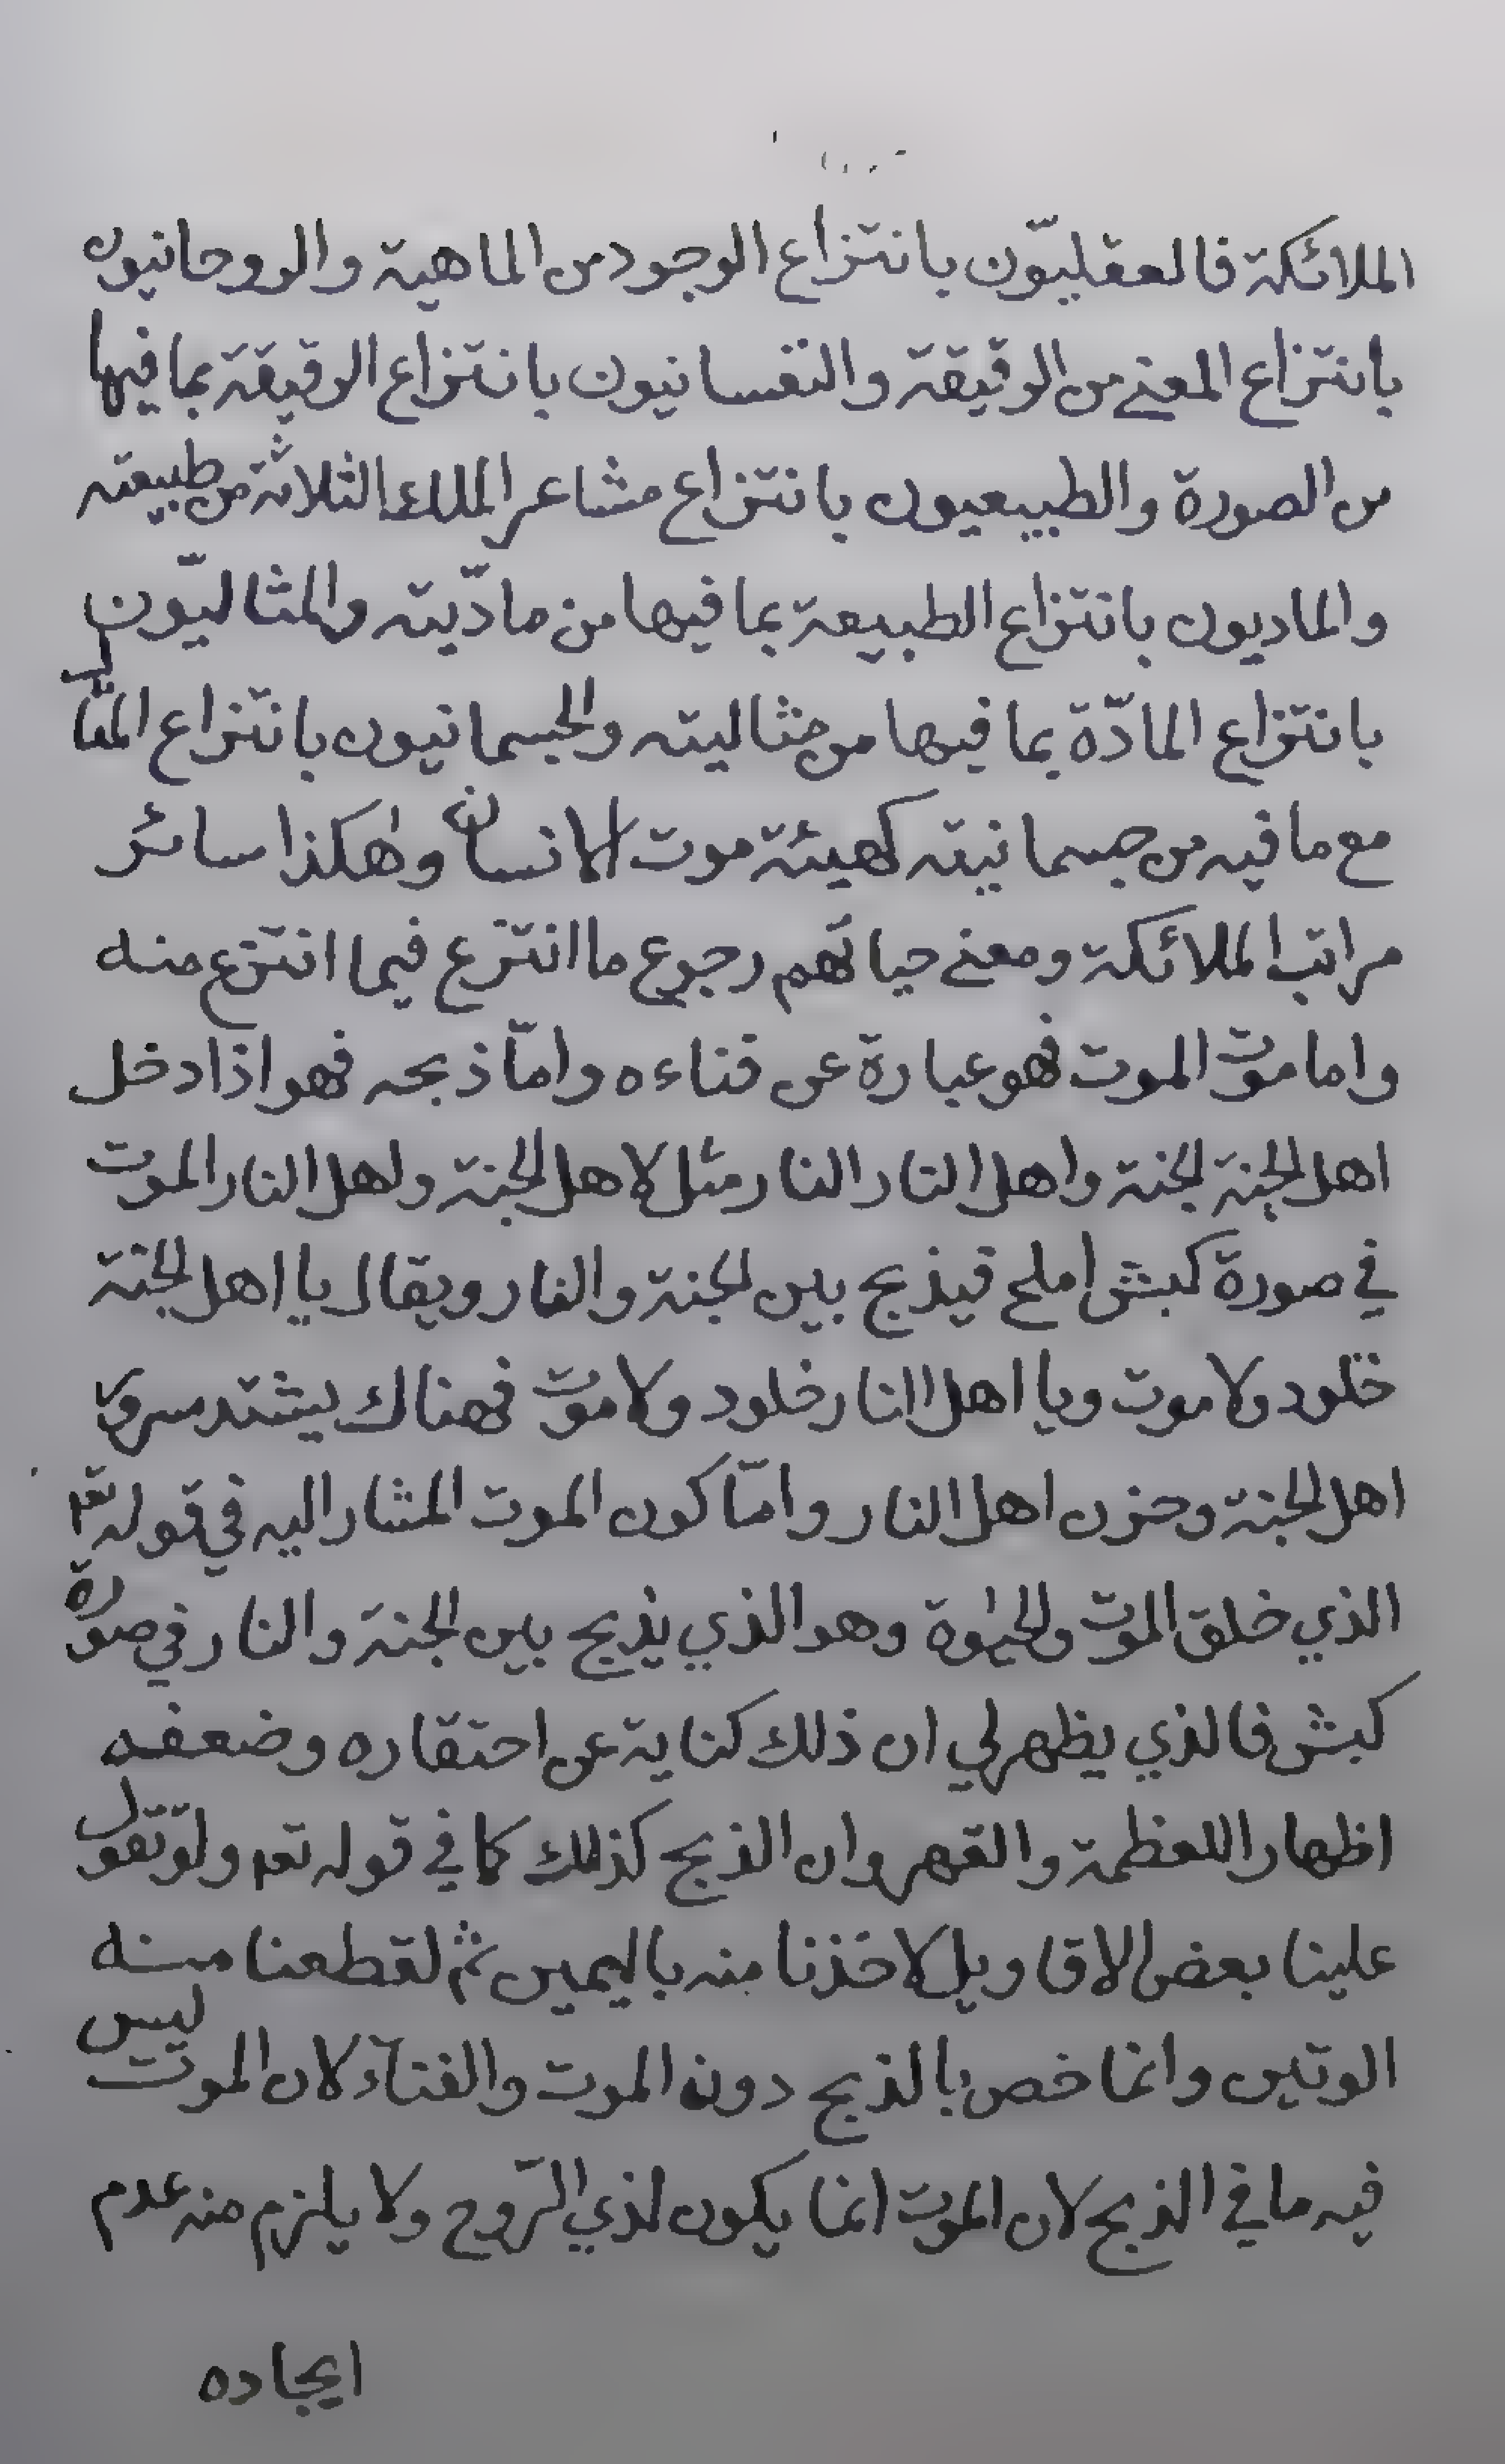 الملائكة فالعقليّون بانتزاع الوجود من الماهية والروحانيون
بانتزاع المعنى من الرقيقة والنفسانيون بانتزاع الرقيقة بما فيها
من الصورة والطبيعيون بانتزاع مشاعر الملك الثلاثة من طبيعته
والماديون بانتزاع الطبيعة بما فيها من مادّيته والمثاليّون
بانتزاع المادّة بما فيها من مثاليته والجسمانيون بانتزاع المثال
مع ما فيه من جسمانيته كهيئة موت الانسان وهكذا سائر
مراتب الملائكة ومعنى حياتهم رجوع ما انتزع فيما انتزع منه
واما موت الموت فهو عبارة عن فناءه وامّا ذبحه فهو اذا دخل
اهل الجنة الجنة واهل النار النار مثل لاهل الجنة ولهل النار الموت
في صورة كبش املح فيذبح بين الجنة والنار ويقال يا اهل الجنة
خلود ولا موت ويا اهل النار خلود ولا موت فهناك يشتد سرور
اهل الجنة وحزن اهل النار وامّا كون الموت المشار اليه في قوله تعا
الذي خلق الموت والحيٰوة وهو الذي يذبح بين الجنة والنار في صورة
كبش فالذي يظهر لي ان ذلك كناية عن احتقاره وضعفه
اظهارا للعظمة والقهر وان الذبح كذلك كما في قوله تعا ولو تقول
علينا بعض الاقاويل لاخذنا منه باليمين ثم لقطعنا منه
الوتين وانما خص بالذبح دون الموت والفنآء لان الموت ليس
فيه ما في الذبح لان الموت انما يكون لذي الرّوح ولا يلزم منه عدم
ايجاده